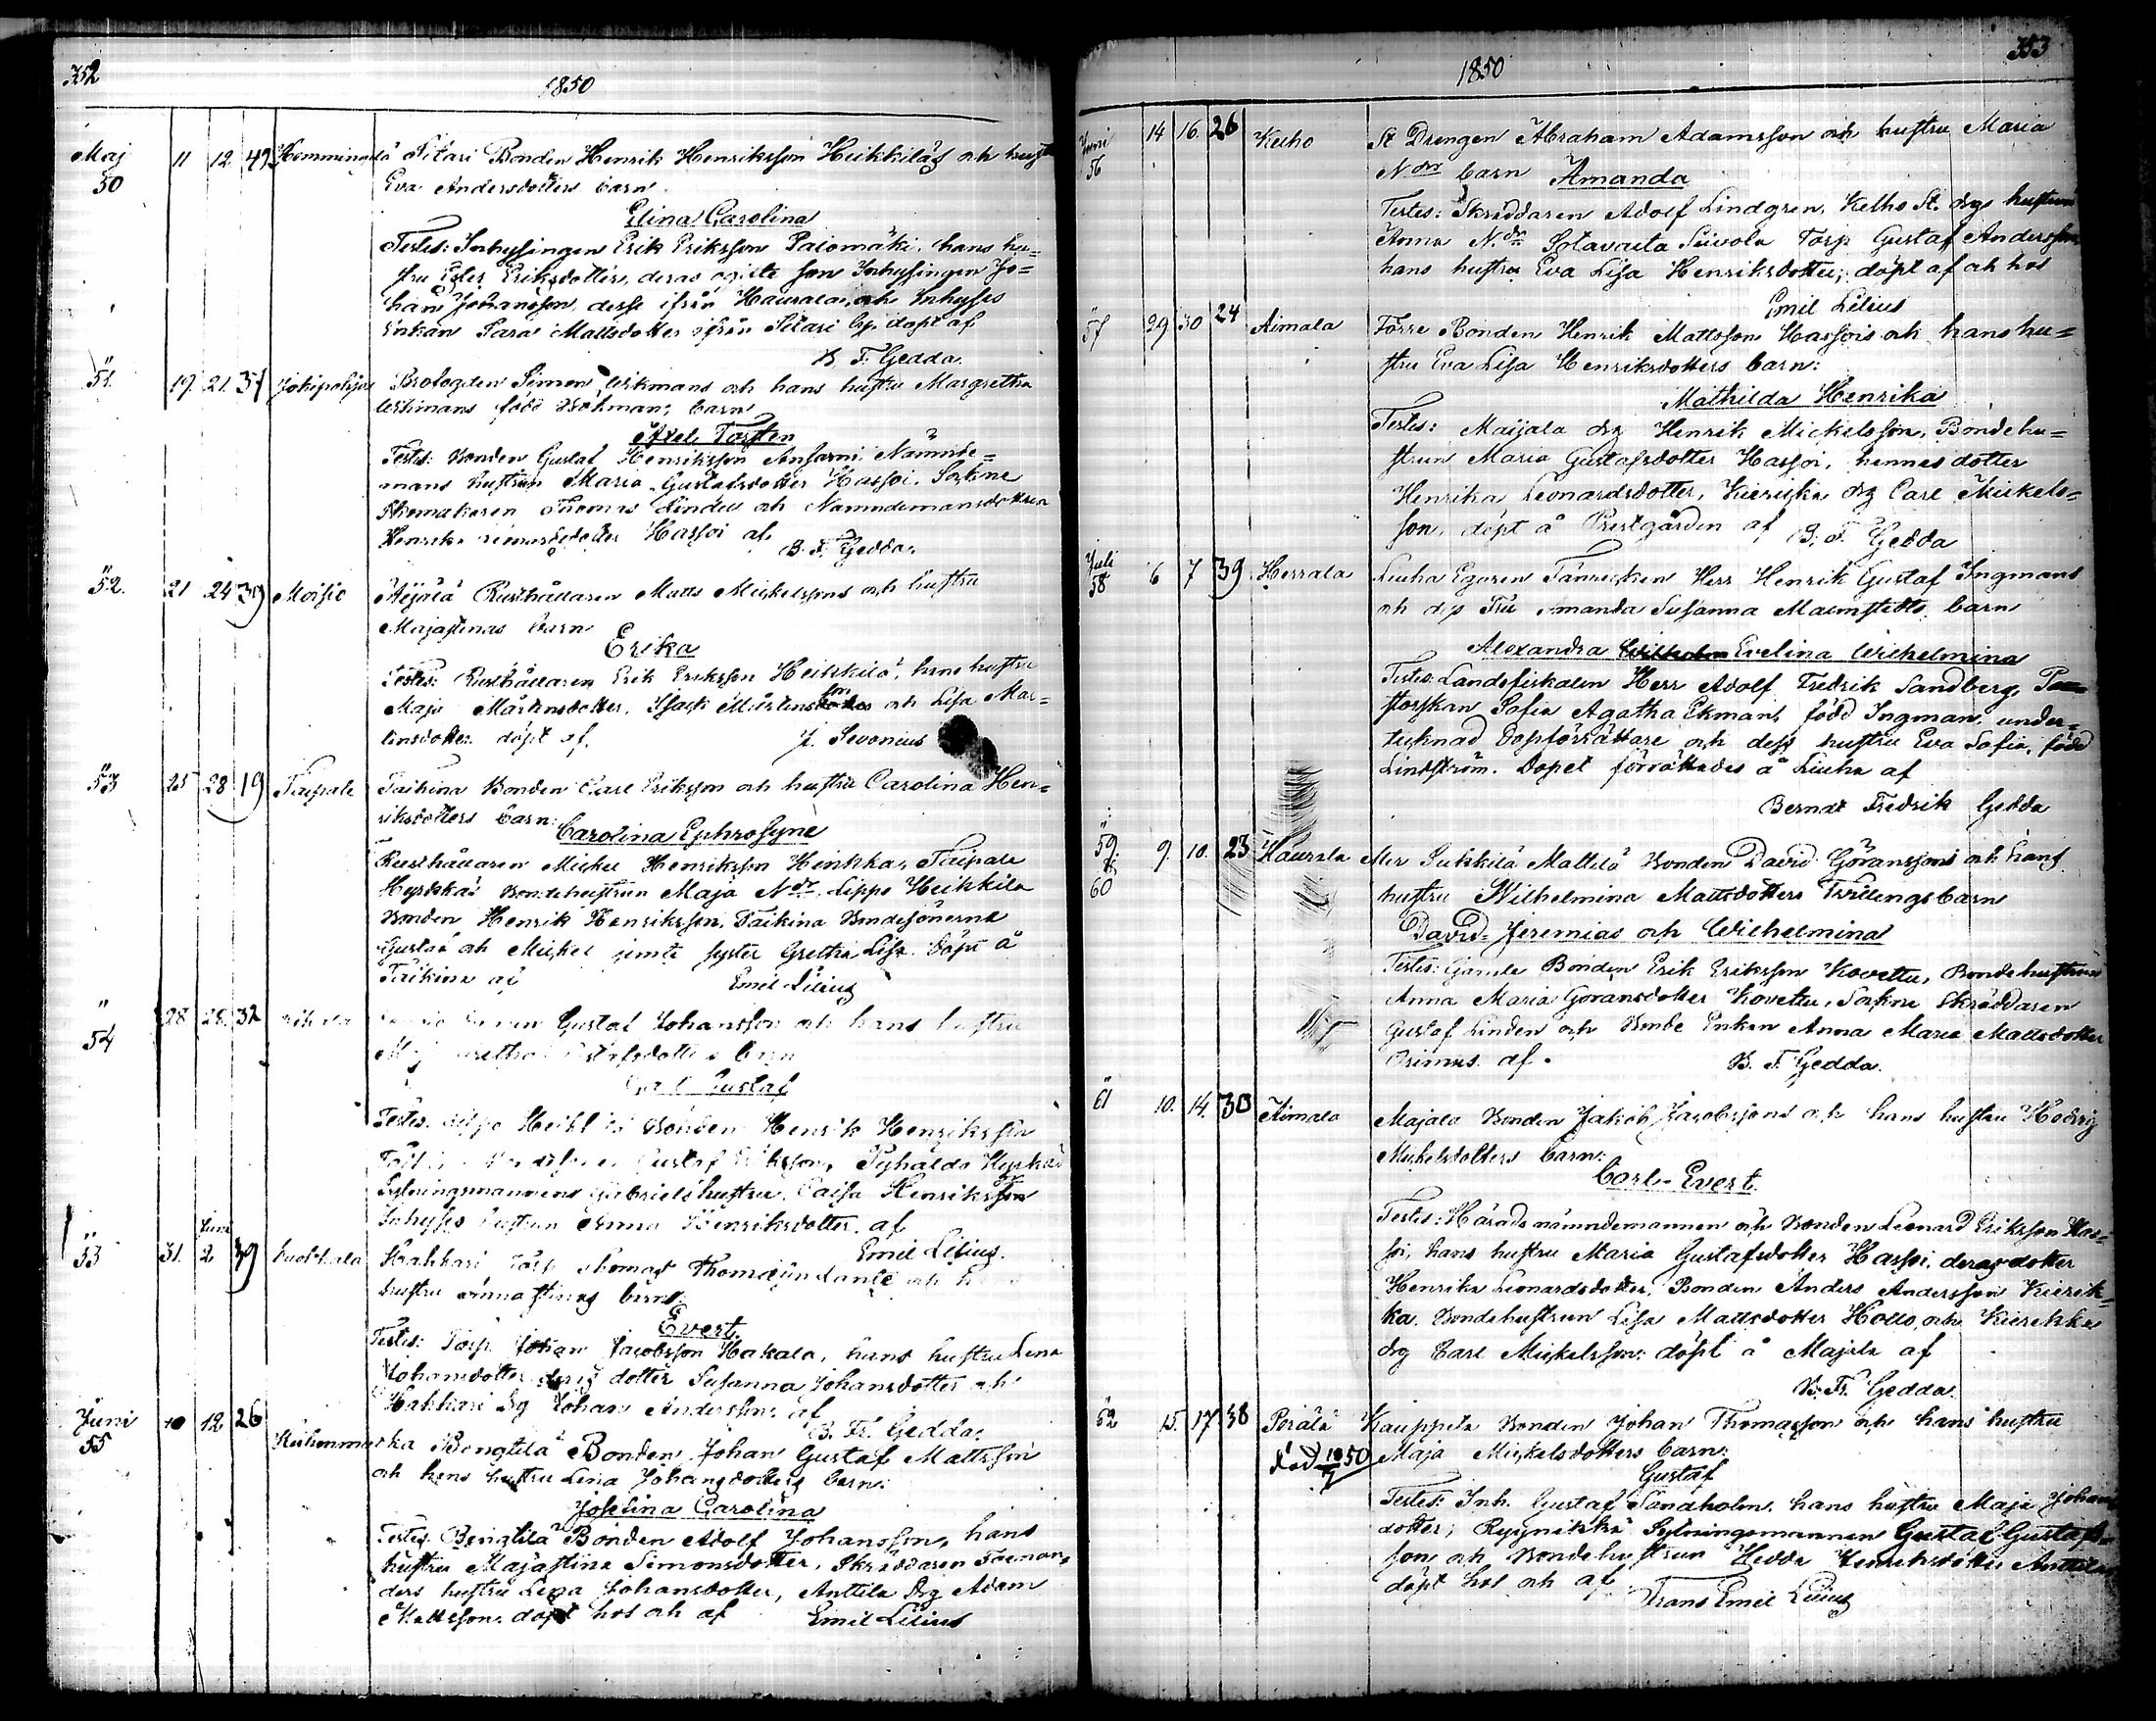 352
1850
Maj 11 12 49 Hemmingilä Sitari Bonden Henrik Henriksson Heikkiläs och hustru
50 Eva Andersdotters barn
Elina Carolina
Testes: Inhysingen Erik Eriksson Palomäki, hans hu=
stru Ester Eriksdotter, deras ogifte son Inhysingen Jo=
han Johansson, desse ifrån Hausala, och Inhyses
Enkan Sara Mattsdotter ifrån Sitari by. döpt af
B. F. Gedda
" 51. 19. 21. 37 Simon och hans hustru Margretha
född Böhman, barn
Axel Torsten
Testes: Bonden Gustaf Henriksson Ansarni, Nämnde=
mans hustrun Maria Gustafsdotter Hassoi, Sockne
Skomakaren Thomas Lindell och Nämndemansdottren
Henrika Hassoi af
B. F. Gedda.
" 52. 21 24 39 Moisio Äijälä Rusthållaren Matts Mickelssons och hustru
Majastinas barn
Erika
Testes: Rusthållaren Erik Eriksson Heikkilä, hans hustru
Maja Mårtensdotter, Isack Mårtensson och Lisa Mar=
tinsdotter. döpt af. J. Sevonius
" 53 25 28 19 Taipale Taikina Bonden Carl Eriksson och hustru Carolina Hen=
riksdotters barn:
Carolina Ephrosyne
Rusthållaren Mickel Henriksson Heikka, Taipale
Hyrkkäs Bondehustrun Maja N:dr Lippo Heikkilä
Bonden Henrik Henriksson, Taikina Bondesönerna
Gustaf och Mickel jemte syster Gretha Lisa. Döpt å
Taikina af Emil Lilius
" 54 28 28. 32 Gustaf Johansson och hans hustru
barn
Gustaf
Testes. Lippo Heikkilä Bonden Henrik Henriksson
Gustaf Eriksson, Hyrkäs
Sytningsmannens Gabriels hustru, Caisa Henriksdr
Inhyses hustrun Anna Henriksdotter. af
Emil Lilius.
" 53 31. Juni 2 39 Hahkari Torp Thomas och hans
hustru Annastinas barn:
Evert.
Testes: Torp. Johan Jacobsson Hakala, hans hustru Lena
Johansdotter deras dotter Susanna Johansdotter och
Hahkari Dg Johan Andersson. af
B. Fr. Gedda.
Juni 10 12 26
55 Kuhenmarka Bengtilä Bonden Johan Gustaf Mattsson
och hans hustru Lena Johansdotters barn:
Josefina Carolina
Testes. Bengtilä Bonden Adolf Johansson, hans
hustru Majastina Simonsdotter, Skräddaren
hustru Lena Johansdotter, Anttila Dg Adam
Mattsson. döpt hos och af Emil Lilius
353
1850
Juni 14 16. 26 Kelho St. Drengen Abraham Adamsson och hustru Maria
56 N:dr barn Amanda
Testes: Skräddaren Adolf Lindgren, Kelho St. drgs hustrun
Anna N:dr Sotavalta Seivola Torp Gustaf Andersson
hans hustru Eva Lisa Henriksdotter; döpt af och hos
Emil Lilius
" 57 29 30 24 Aimala Förre Bonden Henrik Mattsson Hassois och hans hu=
stru Eva Lisa Henriksdotters barn:
Mathilda Henrika
Testes: Maijala drg Henrik Mickelsson, Bondehu=
strun Maria Gustafsdotter Hassoi, hennes dotter
Henrika Leonardsdotter, Kierikka drg Carl Mickels=
son, döpt å Prestgården af B. F. Gedda
Juli 6 7 39 Herrala Liuha Egaren Fänricken Herr Henrik Gustaf Ingmans
58 och dess Fru Amanda Susanna Malmstedts barn
Alexandra Wilhelm Evelina Wilhelmina
Testes: Landsfiskalen Herr Adolf Fredrik Sandberg, Pa=
storskan Sofia Agatha Ekman, född Ingman, under=
tecknad Dopförrättare och dess hustru Eva Sofia, född
Lindström. Dopet förrättades å Liuha af
Berndt Fredrik Gedda
" 59 9. 10. 23 Hausala Mer Sukkila Mattila Bonden David Göranssons och hans
60 hustru Wilhelmina Mattsdotters Tvillingsbarn
David Jeremias och Wilhelmina
Testes: Gamle Bonden Erik Eriksson Kovettu, Bondehustrun
Anna Maria Göransdotter Kovettu, Sockne Skräddaren
Gustaf Linden och Bonde Enkan Anna Maria Mattsdotter
af. B. F. Gedda.
" 61 10. 14. 30 Aimala Majala Bonden Jakob Jacobssons och hans hustru Hedvig
Mickelsdotters barn:
Carl-Evert.
Testes: Härads nämndemannen och Bonden Leonard Eriksson Has=
soi, hans hustru Maria Gustafsdotter Hassoi, deras dotter
Henrika Leonardsdotter, Bonden Anders Andersson Kierik=
ka, Bondehustrun Lisa Mattsdotter Hollo, och Kierikka
drg Carl Mickelsson; döpt å Majala af
B. Fr. Gedda.
" 62 15. 17. 38 Perälä Kauppila Bonden Johan Thomasson och hans hustru
Död 18 50 Maja Mickelsdotters barn:
Gustaf
Testes: Inh. Gustaf Sandholm, hans hustru Maja Johans
dotter, Ryynikkä Sytningsmannen Gustaf Gustafs=
son och Bondehustrun Hedda Henriksdotter Anttila
döpt hos och af Frans Emil Lilius